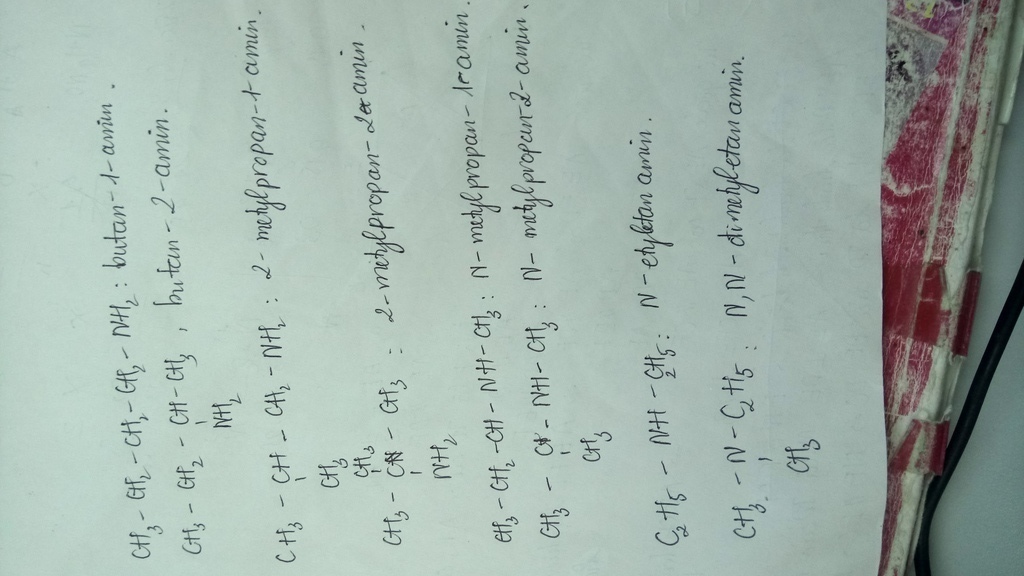 CH3 - CH2 - CH2 - CH2 - NH2 : butan-1-amin.
CH3 - CH2 - CH - CH3 , butan-2-amin.
NH2
CH3 - CH - CH2 - NH2 : 2-metylpropan-1-amin.
CH3
CH3
CH3 - CN - CH3 : 2-metylpropan-2-amin.
NH2
CH3 - CH2 - CH - NH - CH3 : N-metylpropan-1-amin.
CH3 - CH - NH - CH3 : N-metylpropan-2-amin.
CH3
C2H5 - NH - C2H5 : N-etyletanamin.
CH3 - N - C2H5 : N,N-dimetyletanamin.
CH3